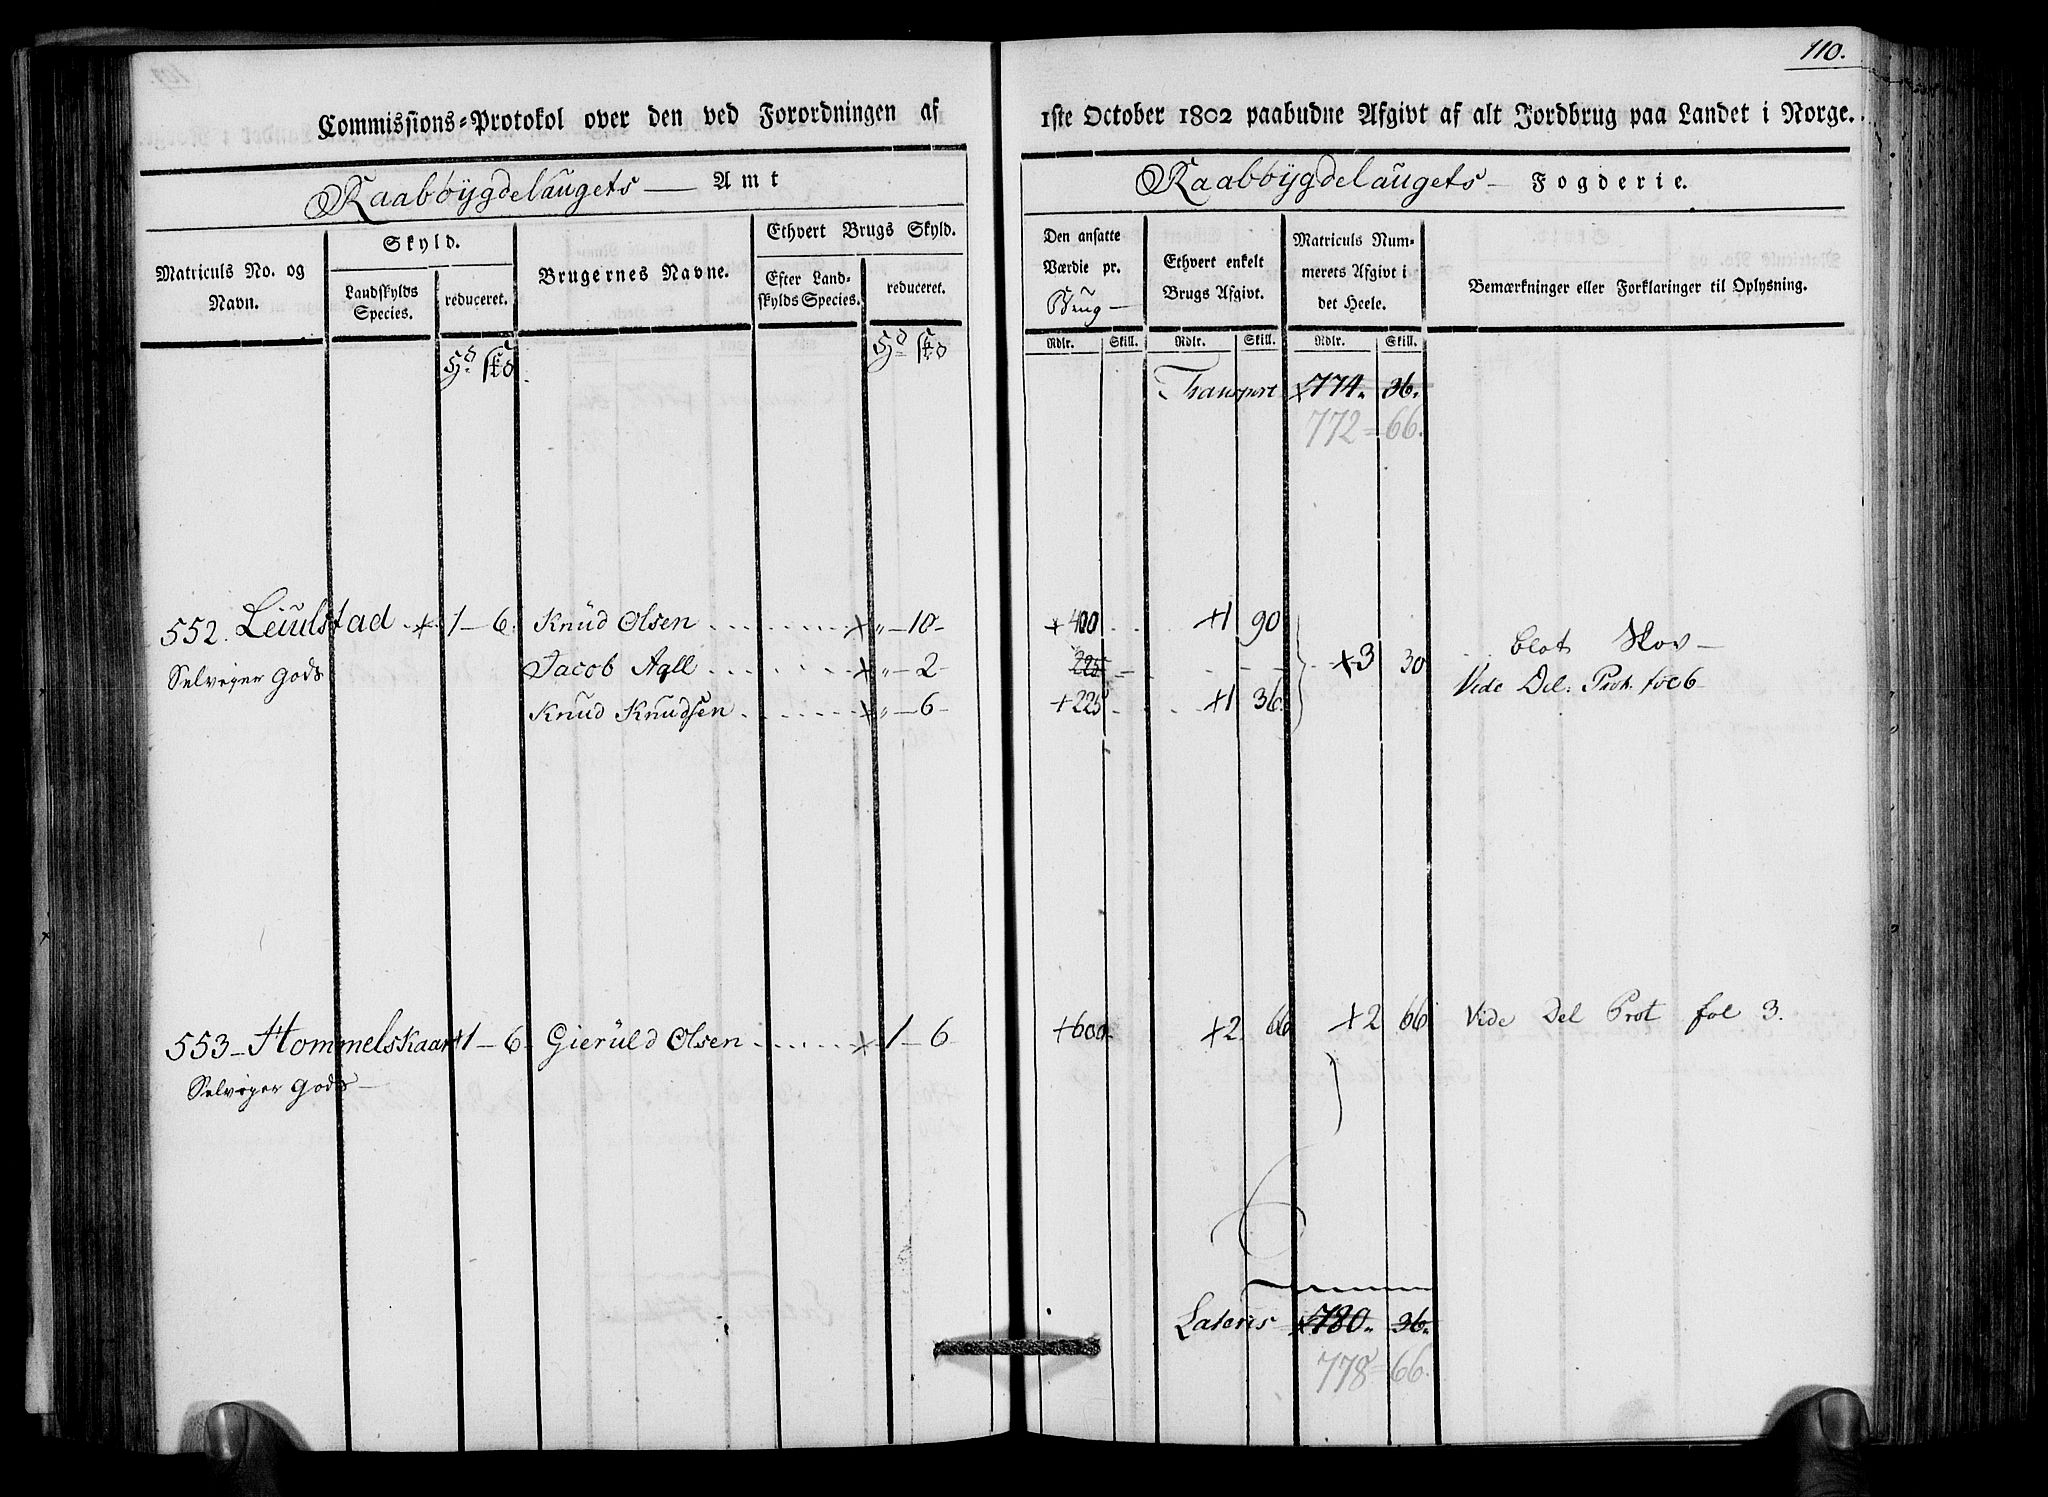 110.
Commissions-Protokol over den ved Forordningen af 1ste October 1802 paabudne Afgivt af alt Jordbrug paa Landet i Norge.
Raabøygdelaugets — Amt
Raabøygdelaugets — Fogderie.
Matriculs No. og Navn.
Skyld.
Landskylds Species.
reduceret.
Brugernes Navne.
Ethvert Brugs Skyld.
Efter Landskylds Species.
reduceret.
Den ansatte Værdie pr. Brug —
Ethvert enkelt Brugs Afgivt.
Matriculs Nummerets Afgivt i det Heele.
Bemærkninger eller Forklaringer til Oplysning.
Rdlr. Skill. Rdlr. Skill. Rdlr. Skill.
Transport x 774. 36.
772 = 66.
552. Leiulstad x 1 — 6. Knüd Olsen x „ — 10 — +400 +1 90
Selveyer Gods Jacob Agll x „ — 2 225 — +3 30 blot Skov —
Vide Del: Prot. fol 6
Knud Knudsen x „ — 6 — +225 +1 36.
553 — Hommelskaar +1 — 6. Gierüld Olsen x 1 — 6 +600 +2. 66 +2 66 Vide Del Prot fol 3.
Selveyer Gods —
Lateris x 780. 36.
778 = 66.